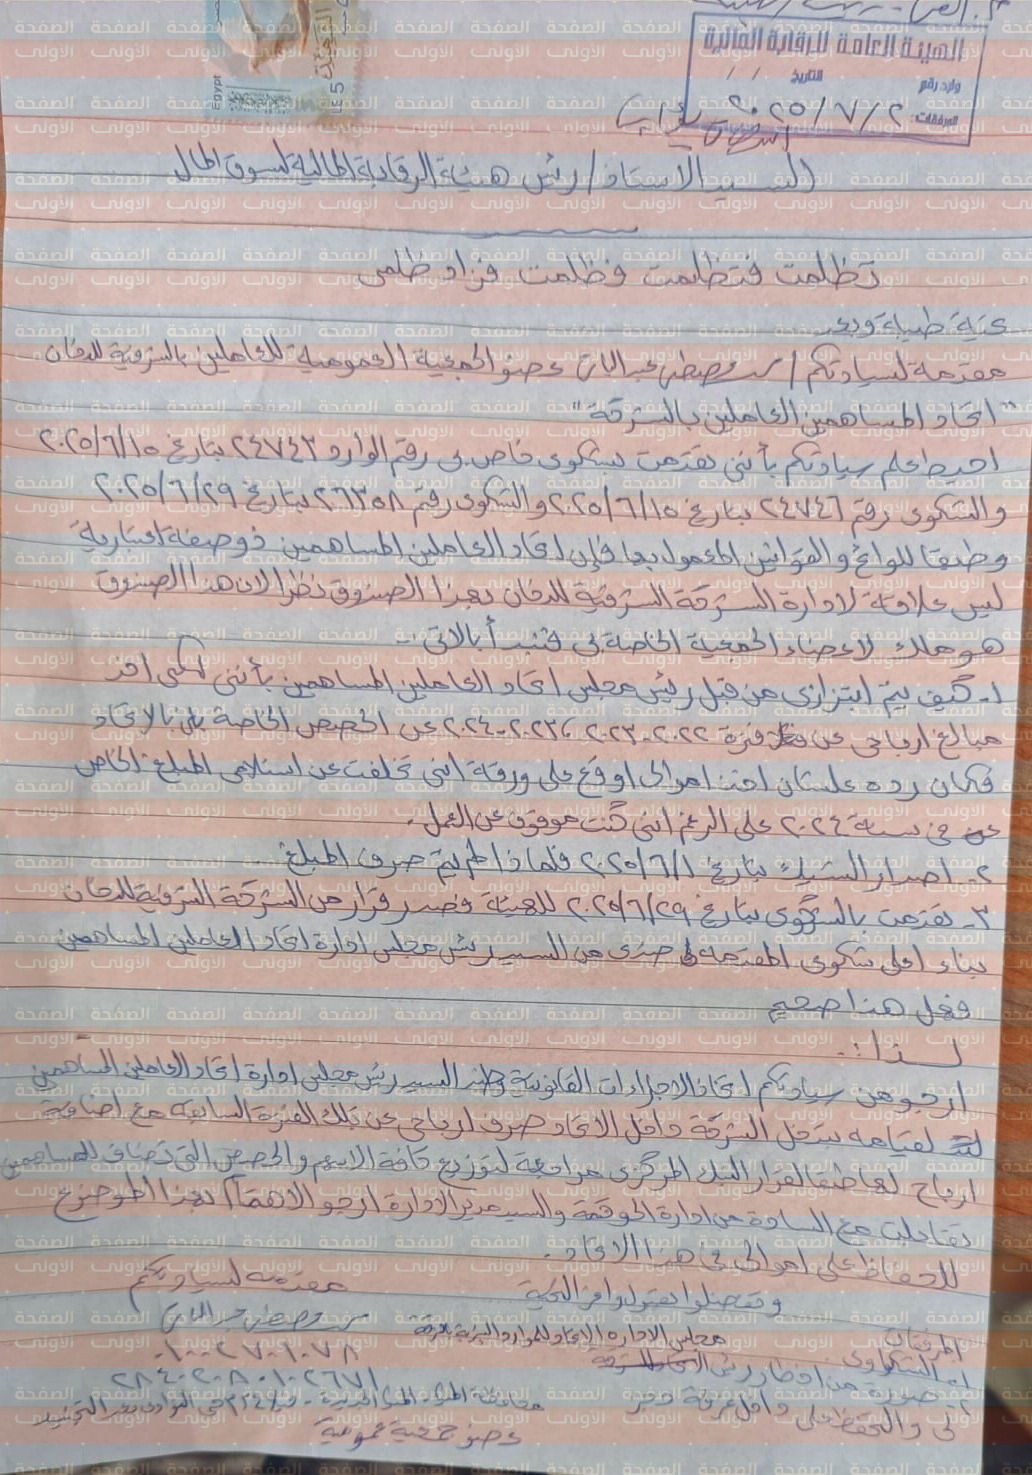 الهيئة العامة للرقابة المالية
وارد رقم
التاريخ / /
المرفقات:
٢٠٢٥/٧/٢
Egypt
LE 5
السيد الاستاذ / رئيس هيئة الرقابة المالية لسوق المال
تظلمت فتظلمت فظلمت فزاد ظلمى
تحية طيبة وبعد
مقدمة لسيادتكم / مصطفى عضو الجمعية العمومية للعاملين بالشرقية للدخان
"اتحاد المساهمين العاملين بالشركة"
احيط علم سيادتكم بأننى تقدمت بشكوى خاص بى رقم الوارد ٢٤٧٤٣ بتاريخ ٢٠٢٥/٦/١٥
والشكوى رقم ٢٤٧٤٦ بتاريخ ٢٠٢٥/٦/١٥ والشكوى رقم ٢٦٣٥٨ بتاريخ ٢٠٢٥/٦/٢٩
وطبقا للوائح والقوانين المعمول بها فإن اتحاد العاملين المساهمين ذو صفة اعتبارية
ليس علاقة لادارة الشركة الشرقية للدخان بهذا الصندوق نظرا لان هذا الصندوق
هو ملك لاعضاء الجمعية الخاصة بى فنبدأ بالاتى..
١- كيف يتم ابتزازى من قبل رئيس مجلس اتحاد العاملين المساهمين بأننى لكى اخذ
مبالغ ارباحى عن فترة ٢٠٢٢-٢٠٢٣، ٢٠٢٣-٢٠٢٤ عن الحصص الخاصة بى بالاتحاد
فكان رده علشان اخذ اموالى اوقع على ورقة انى تخلفت عن استلامى المبلغ الخاص
فى سنة ٢٠٢٤ على الرغم انى كنت موقوف عن العمل.
٢- اصدار الشيك بتاريخ ٢٠٢٥/٦/١ فلماذا لم يتم صرف المبلغ
٣- تقدمت بالشكوى بتاريخ ٢٠٢٥/٦/٢٩ للهيئة فصدر قرار من الشركة الشرقية للدخان
بناء على شكوى المقدمه ضدى من السيد رئيس مجلس ادارة اتحاد العاملين المساهمين
فهل هذا صحيح
لذا:
ارجو من سيادتكم اتخاذ الاجراءات القانونية ضد السيد رئيس مجلس ادارة اتحاد العاملين المساهمين
لقيامه بتدخل الشركة داخل الاتحاد صرف ارباحى عن تلك الفترة السابقة مع اضافة
ارباح لها طبقا لقرار البنك المركزى مراجعة لتوزيع كافة الاسهم والحصص التى تضاف للمساهمين
تقابلت مع السادة من ادارة الحوكمة والسيد مدير الادارة ارجو الاهتمام بهذا الموضوع
للحفاظ على اموالى فى هذا الاتحاد.
وتفضلوا بقبول وافر التحية
مقدمه لسيادتكم
المرفقات
الشكاوى
عضو جمعية عمومية
الصفحة الأولى